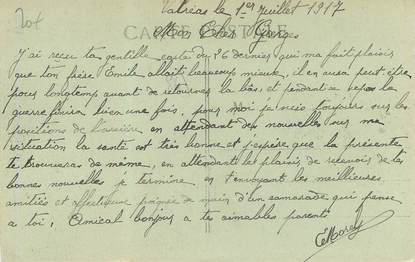 Valréas le 1er juillet 1917
CARTE POSTALE
Mon Cher Georges
J'ai reçu ta gentille carte du 26 dernier qui m'a fait plaisir
que ton frère Emile allait beaucoup mieux, il en aura peut être
pour longtemps avant de retourner la bas, et pendant se temps la
guerre finira bien une fois, pour moi je suis toujours sur les
positions de l'arrière en attendant des nouvelles sur ma
situation la santé est très bonne et j'espère que la présente
te trouveras de même, en attendant les plaisir de recevoir de tes
bonnes nouvelles je termine en t'envoyant les meilleures
amitiés et affectueuse poignée de main d'un camarade qui pense
a toi, Amical bonjour a tes aimables parents